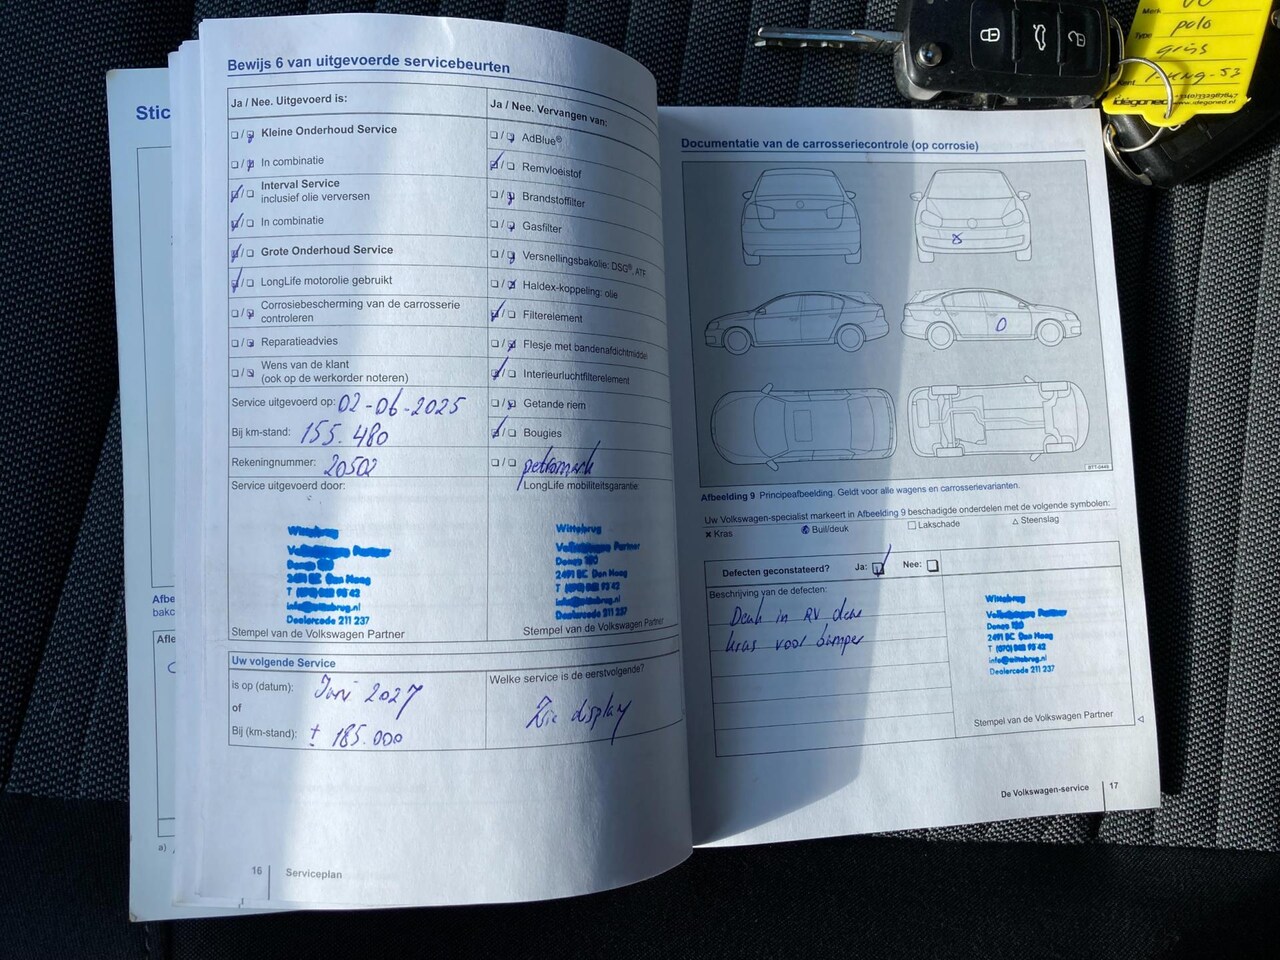 Stic
Afbe
bakc
Afle
a)
Bewijs 6 van uitgevoerde servicebeurten
Ja / Nee. Uitgevoerd is:
Kleine Onderhoud Service
In combinatie
Interval Service
inclusief olie verversen
In combinatie
Grote Onderhoud Service
LongLife motorolie gebruikt
Corrosiebescherming van de carrosserie
controleren
Reparatieadvies
Wens van de klant
(ook op de werkorder noteren)
Service uitgevoerd op: 02-06-2025
Bij km-stand: 155.480
Rekeningnummer: 20502
Service uitgevoerd door:
Wittebrug
Volkswagen Partner
Donau 120
2491 BC Den Haag
info@wittebrug.nl
Dealercode 211 237
Stempel van de Volkswagen Partner
Ja / Nee. Vervangen van:
AdBlue®
Remvloeistof
Brandstoffilter
Gasfilter
Versnellingsbakolie: DSG®, ATF
Haldex-koppeling: olie
Filterelement
Flesje met bandenafdichtmiddel
Interieurluchtfilterelement
Getande riem
Bougies
LongLife mobiliteitsgarantie:
Wittebrug
Volkswagen Partner
Donau 120
2491 BC Den Haag
info@wittebrug.nl
Dealercode 211 237
Stempel van de Volkswagen Partner
Uw volgende Service
is op (datum): Juni 2027
of
Bij (km-stand): ± 185.000
Welke service is de eerstvolgende?
Zie display
16
Serviceplan
Documentatie van de carrosseriecontrole (op corrosie)
BTT-0449
Afbeelding 9 Principeafbeelding. Geldt voor alle wagens en carrosserievarianten.
Uw Volkswagen-specialist markeert in Afbeelding 9 beschadigde onderdelen met de volgende symbolen:
Kras
Buil/deuk
Lakschade
Steenslag
Defecten geconstateerd? Ja: Nee:
Beschrijving van de defecten:
Deuk in RV deur
kras voor bumper
Wittebrug
Volkswagen Partner
Donau 120
2491 BC Den Haag
info@wittebrug.nl
Dealercode 211 237
Stempel van de Volkswagen Partner
De Volkswagen-service
17
Merk
Type polo
grijs
www.idegoned.nl